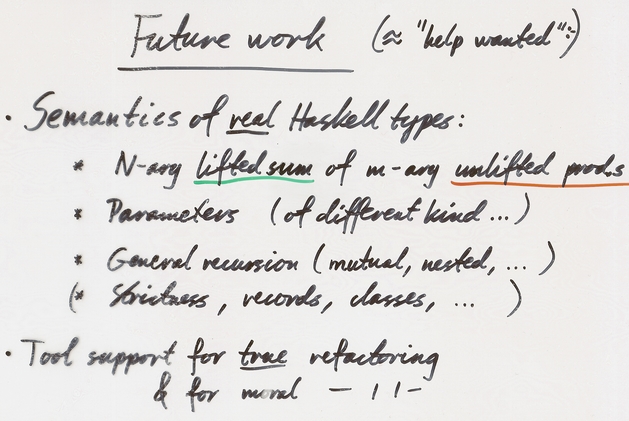 Future work (≈ "help wanted" :-)
• Semantics of real Haskell types:
* N-ary lifted sum of m-ary unlifted prods
* Parameters (of different kind ...)
* General recursion (mutual, nested, ... )
(* Strictness, records, classes, ... )
• Tool support for true refactoring
& for moral — | | —